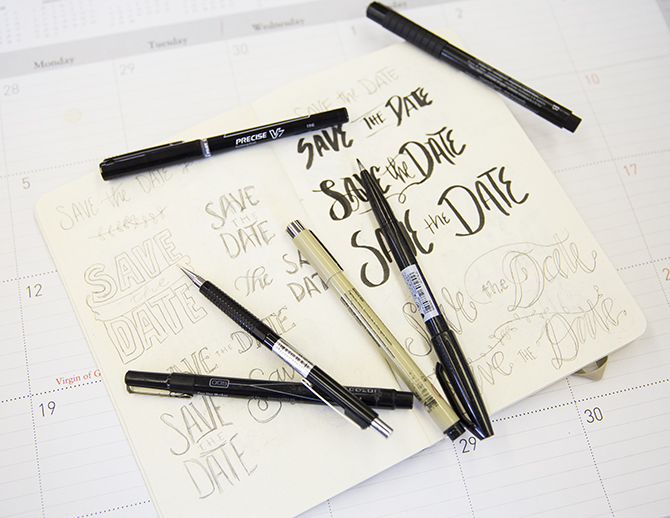 Monday Tuesday Wednesday
28 29 30 1
10
5
17
12
Virgin of G
19
29 30
PRECISE V7
FINE
B
005
SAVE the DATE
SAVE the DATE
SAVE
DATE
SAVE
THE
DATE
The
SAVE
DATE
SAVE THE DATE
SAVE
THE
DATE
SAVE the DATE
SAVE the DATE
SAVE the DATE
SAVE the DATE
Save the Date
Save the Date